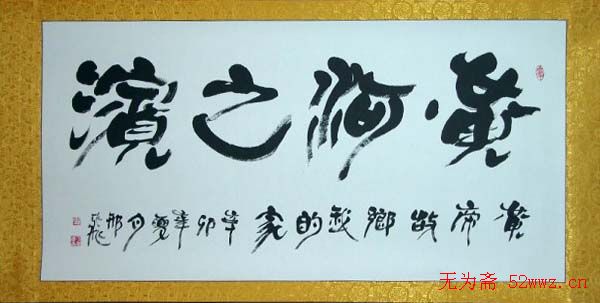 黄河之濱
黄帝故鄉我的家 辛卯年夏月邢飛
无为斋 52wwz.cn